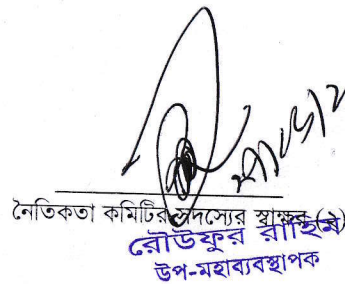 নৈতিকতা কমিটির সদস্যের স্বাক্ষর (২)
রৌউফুর রাহিম
উপ-মহাব্যবস্থাপক